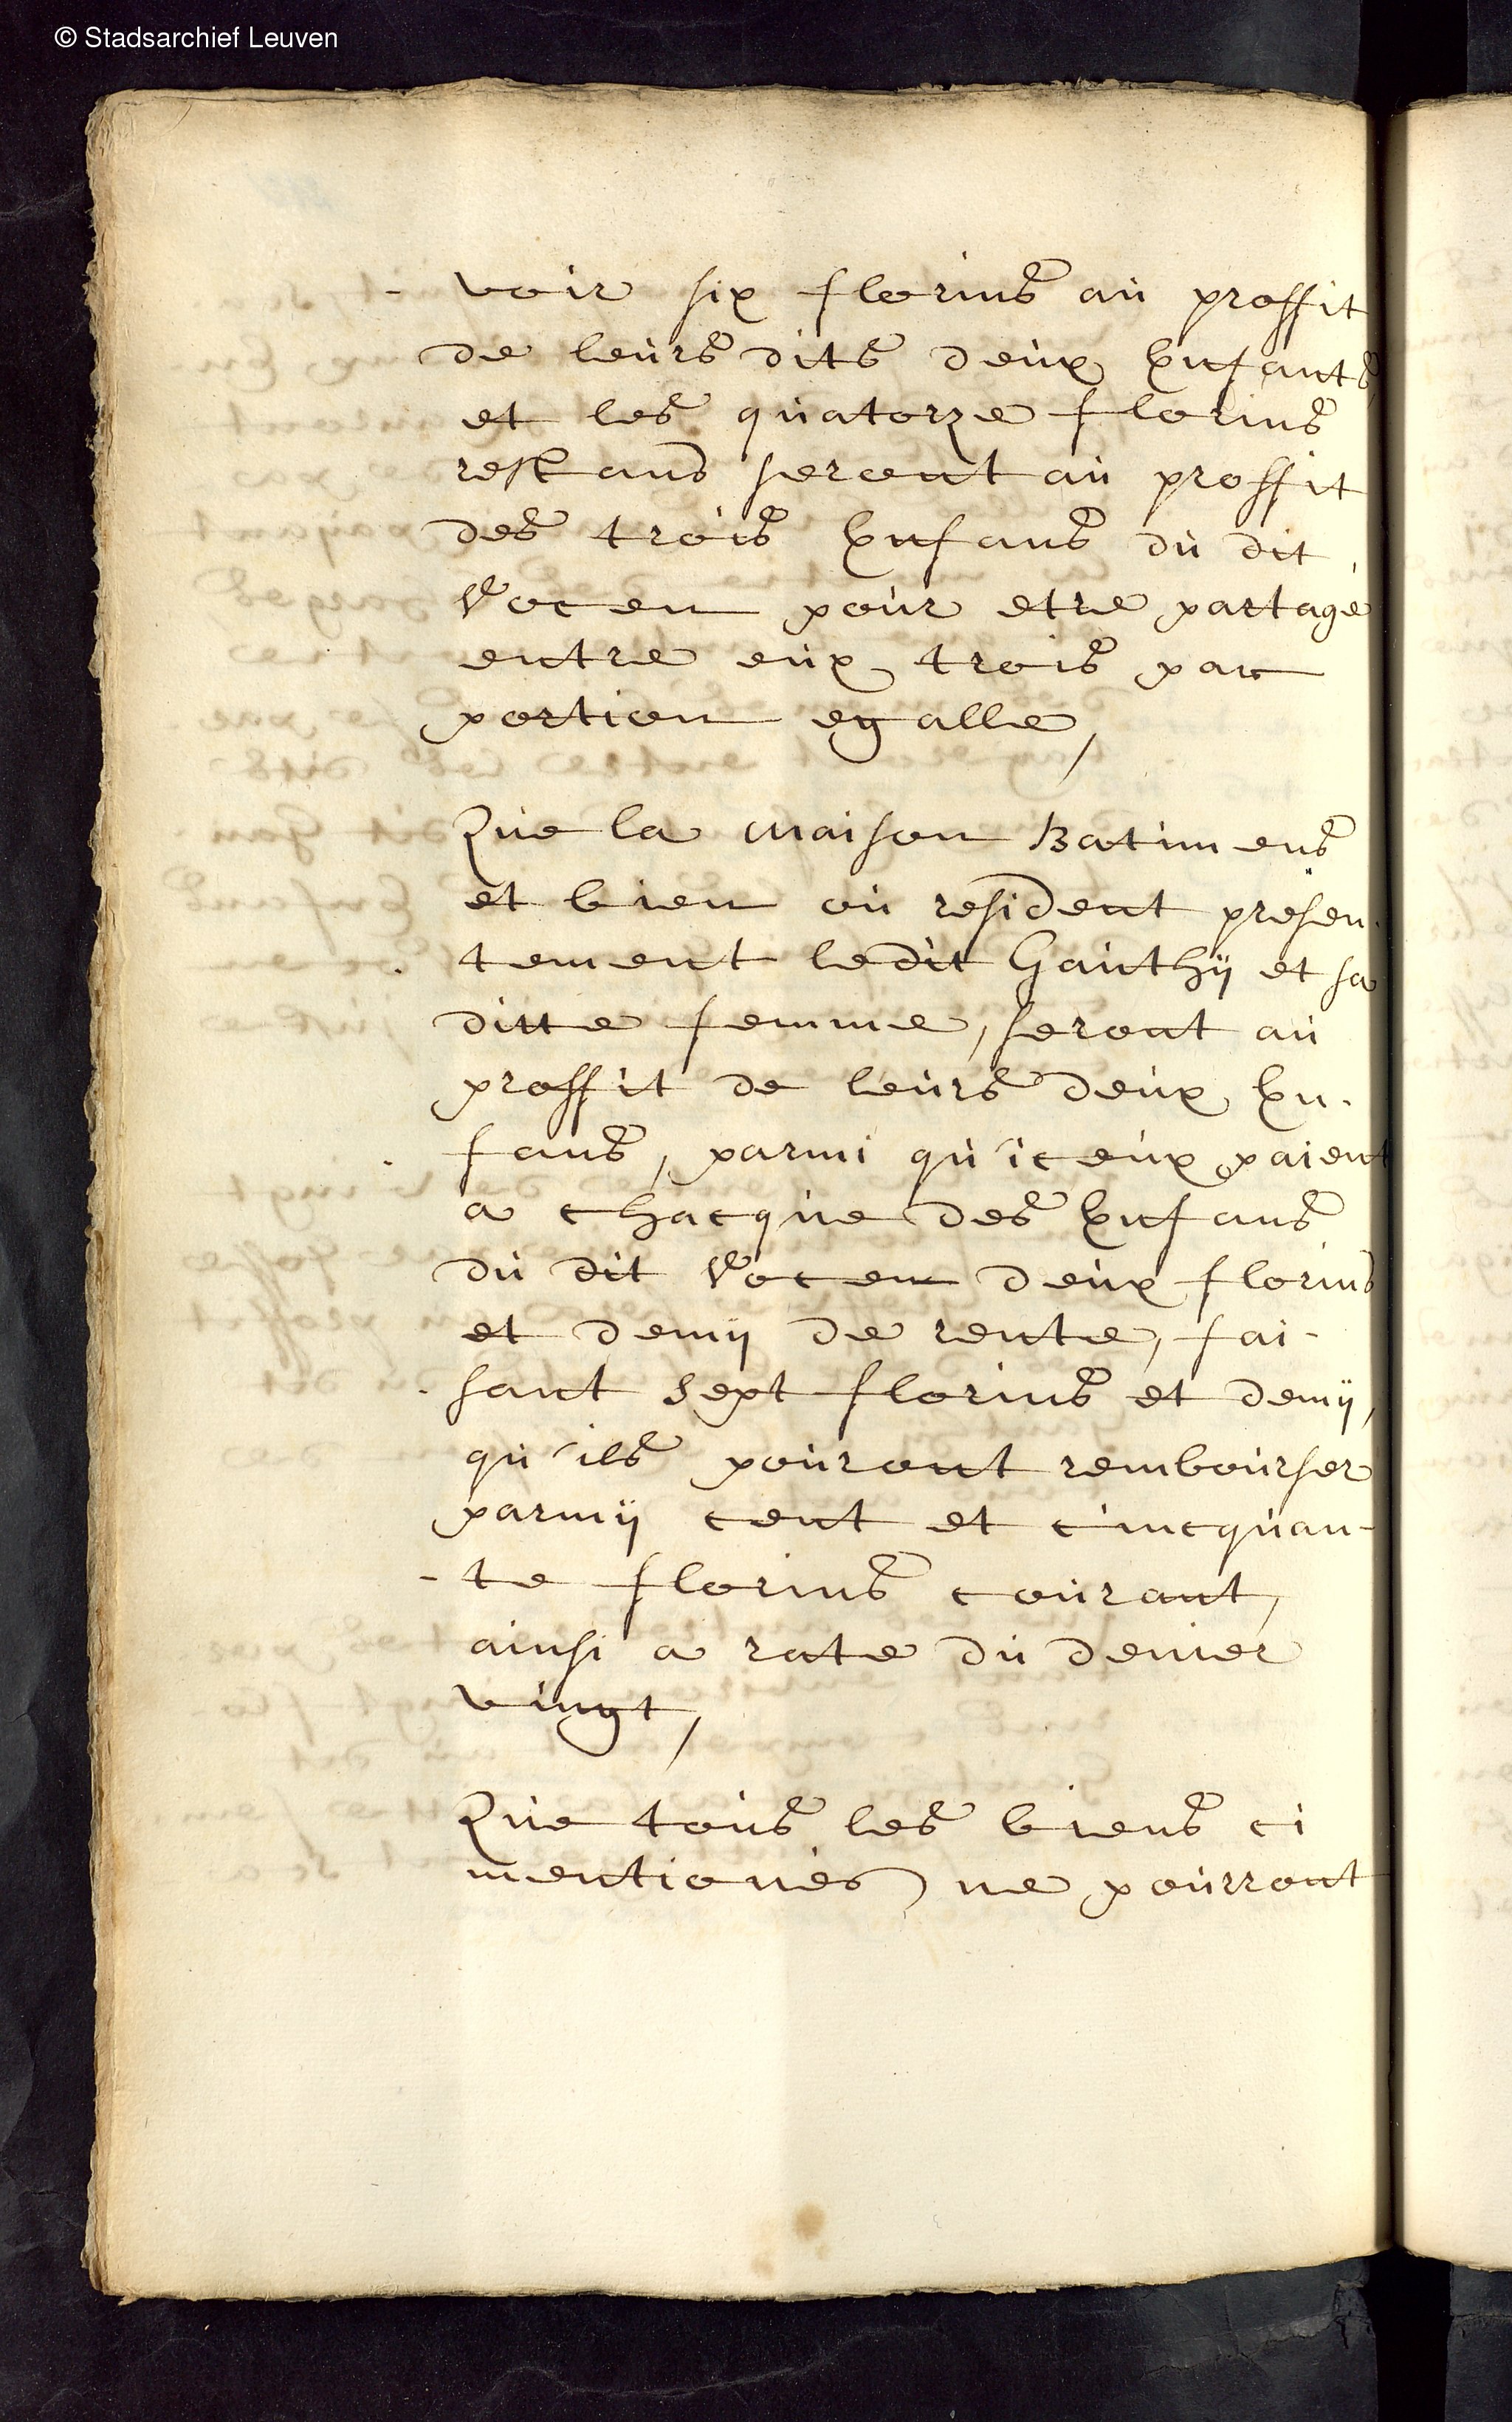 © Stadsarchief Leuven
- voir six florins au proffit
de leurs dits deux Enfants,
et les quatorze florins
restans seront au proffit
des trois Enfans du dit
Vocen pour etre partagé
entre eux trois par
portion egalle,
Que la maison Batimens
et bien ou resident presen-
- tement ledit Gauthÿ et sa
ditte femme, seront au
proffit de leurs deux En-
- fans, parmi qu'iceux paient
a chacque des Enfans
du dit Vocen deux florins
et demÿ de rente, fai-
- sant sept florins et demÿ,
qu'ils pouront rembourser
parmÿ cent et cincquan-
- te florins courant,
ainsi a rate du denier
vingt,
Que tous les biens ci
mentionés ne pourront